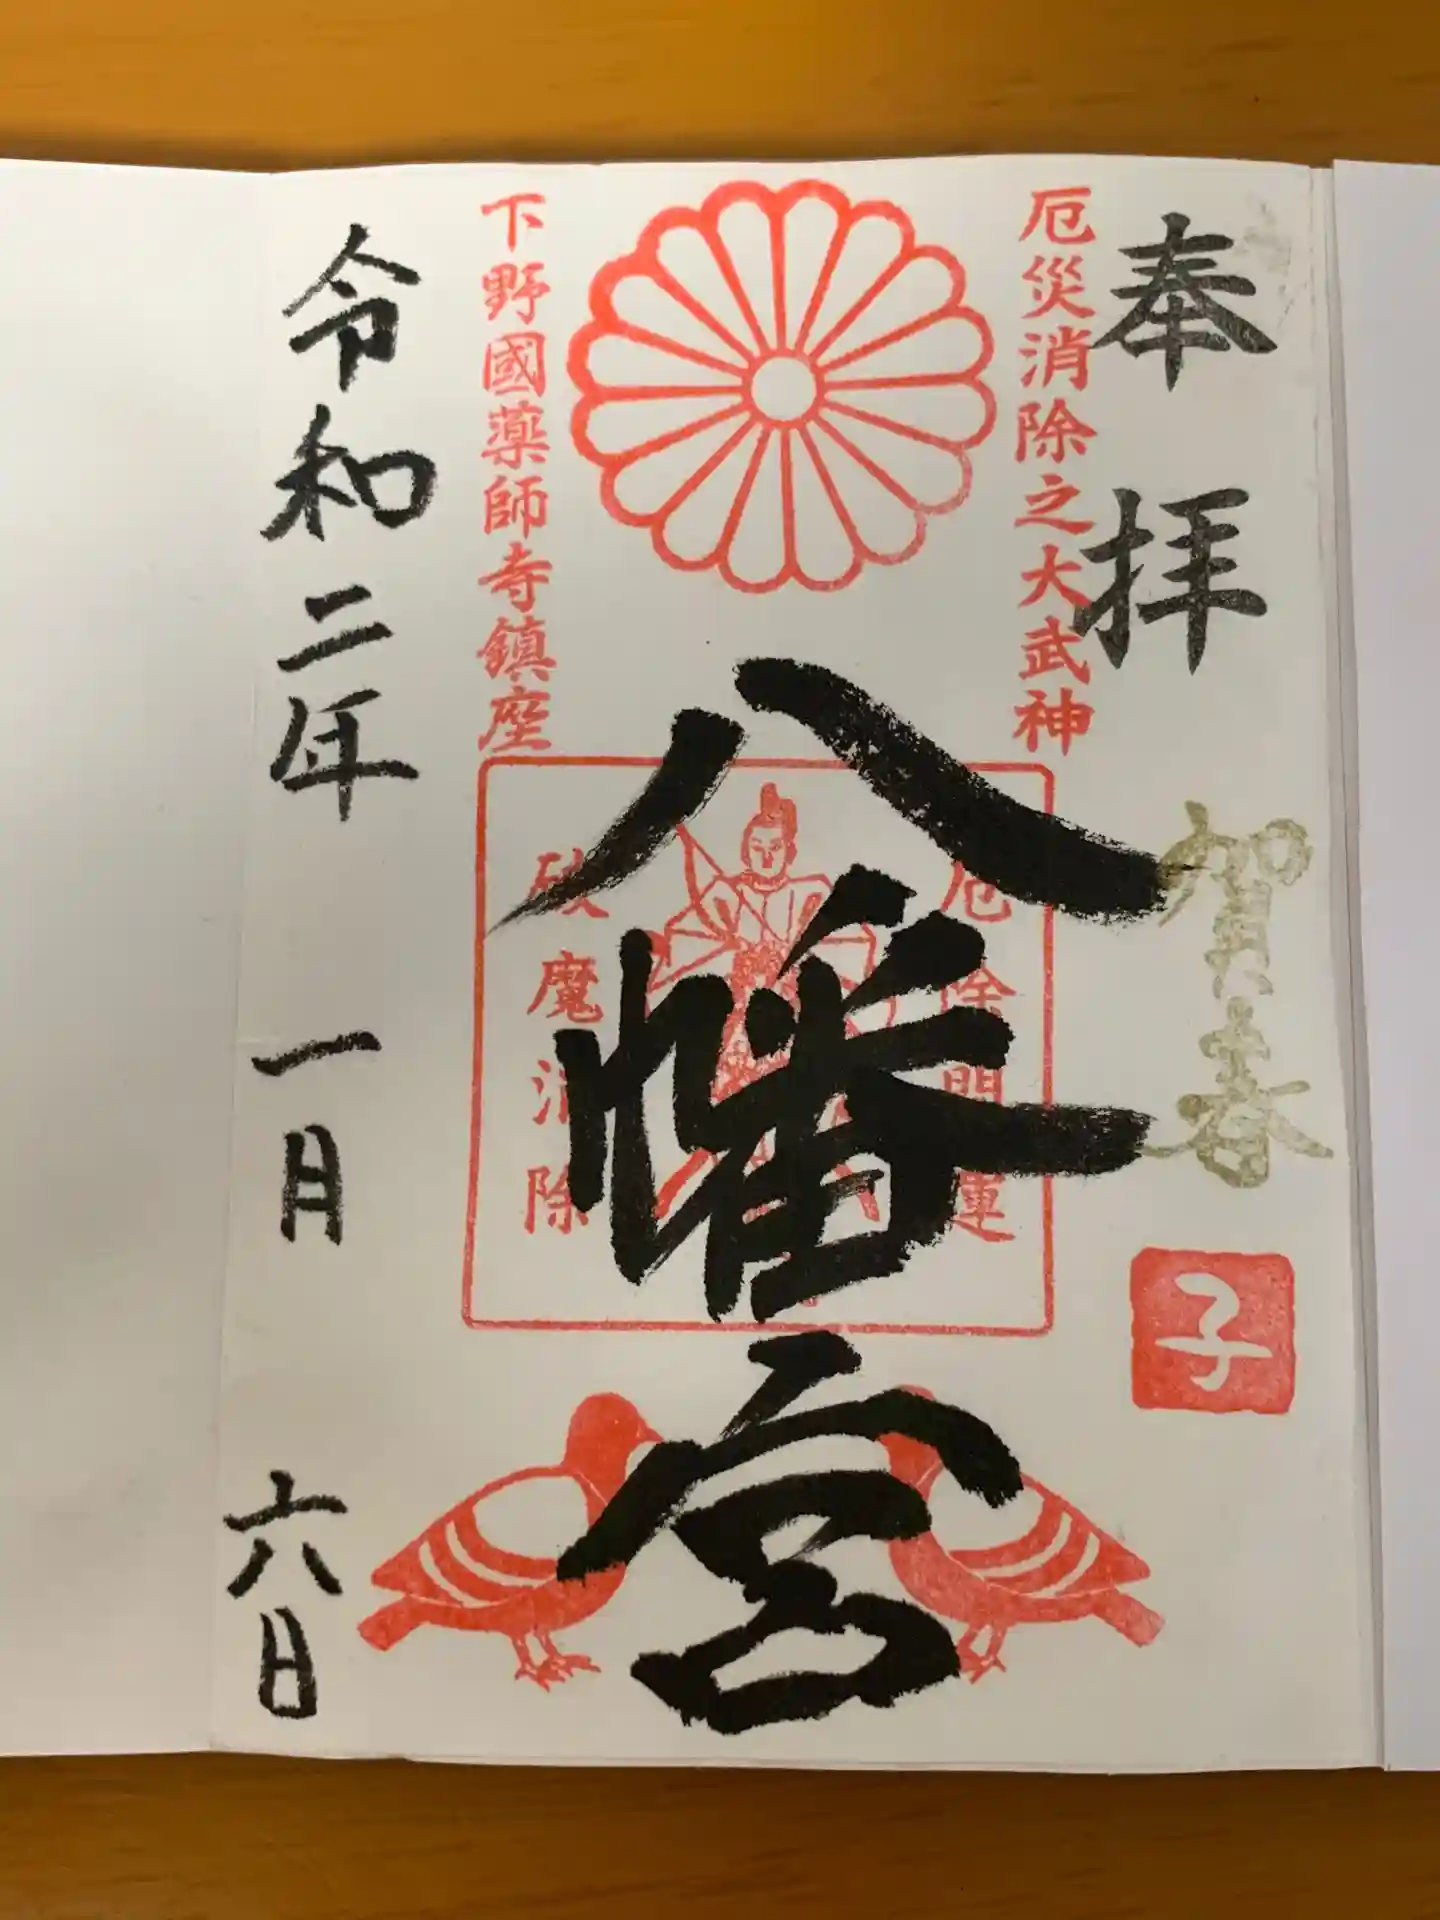 奉拝
賀春
子
厄災消除之大武神
八幡宮
厄除開運
破魔消除
下野國薬師寺鎮座
令和二年 一月 六日